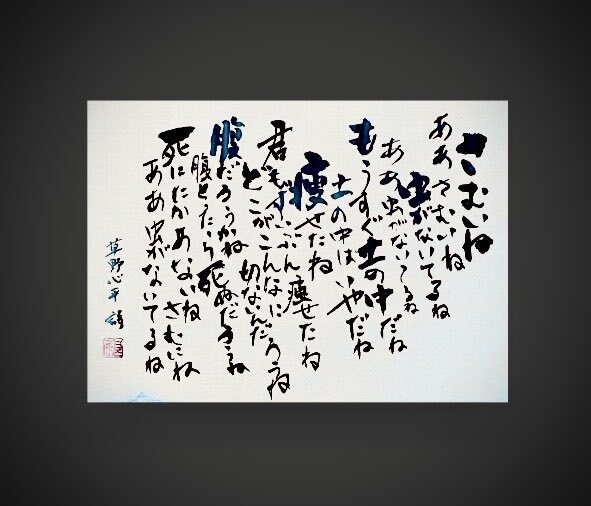 さむいね
ああさむいね
虫がないてるね
ああ虫がないてるね
もうすぐ土の中だね
土の中はいやだね
痩せたね
君もずいぶん痩せたね
どこがこんなに切ないんだろうね
腹だろうかね
腹とったら死ぬだろうね
死にたかあないね さむいね
ああ虫がないてるね
草野心平 詩